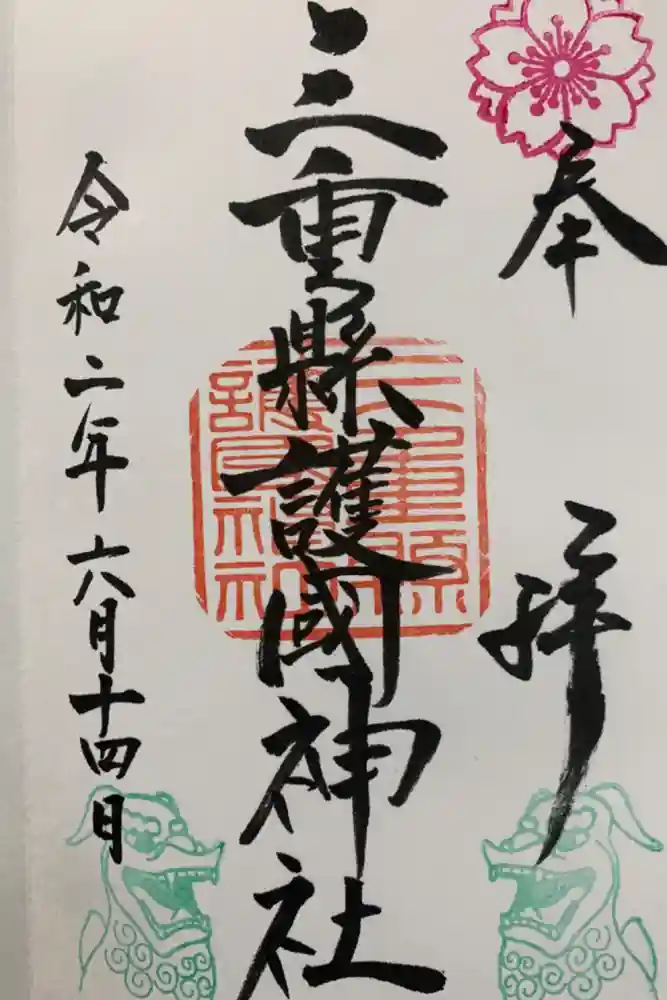 奉拝
三重縣護國神社
三重縣護國神社
令和二年六月十四日